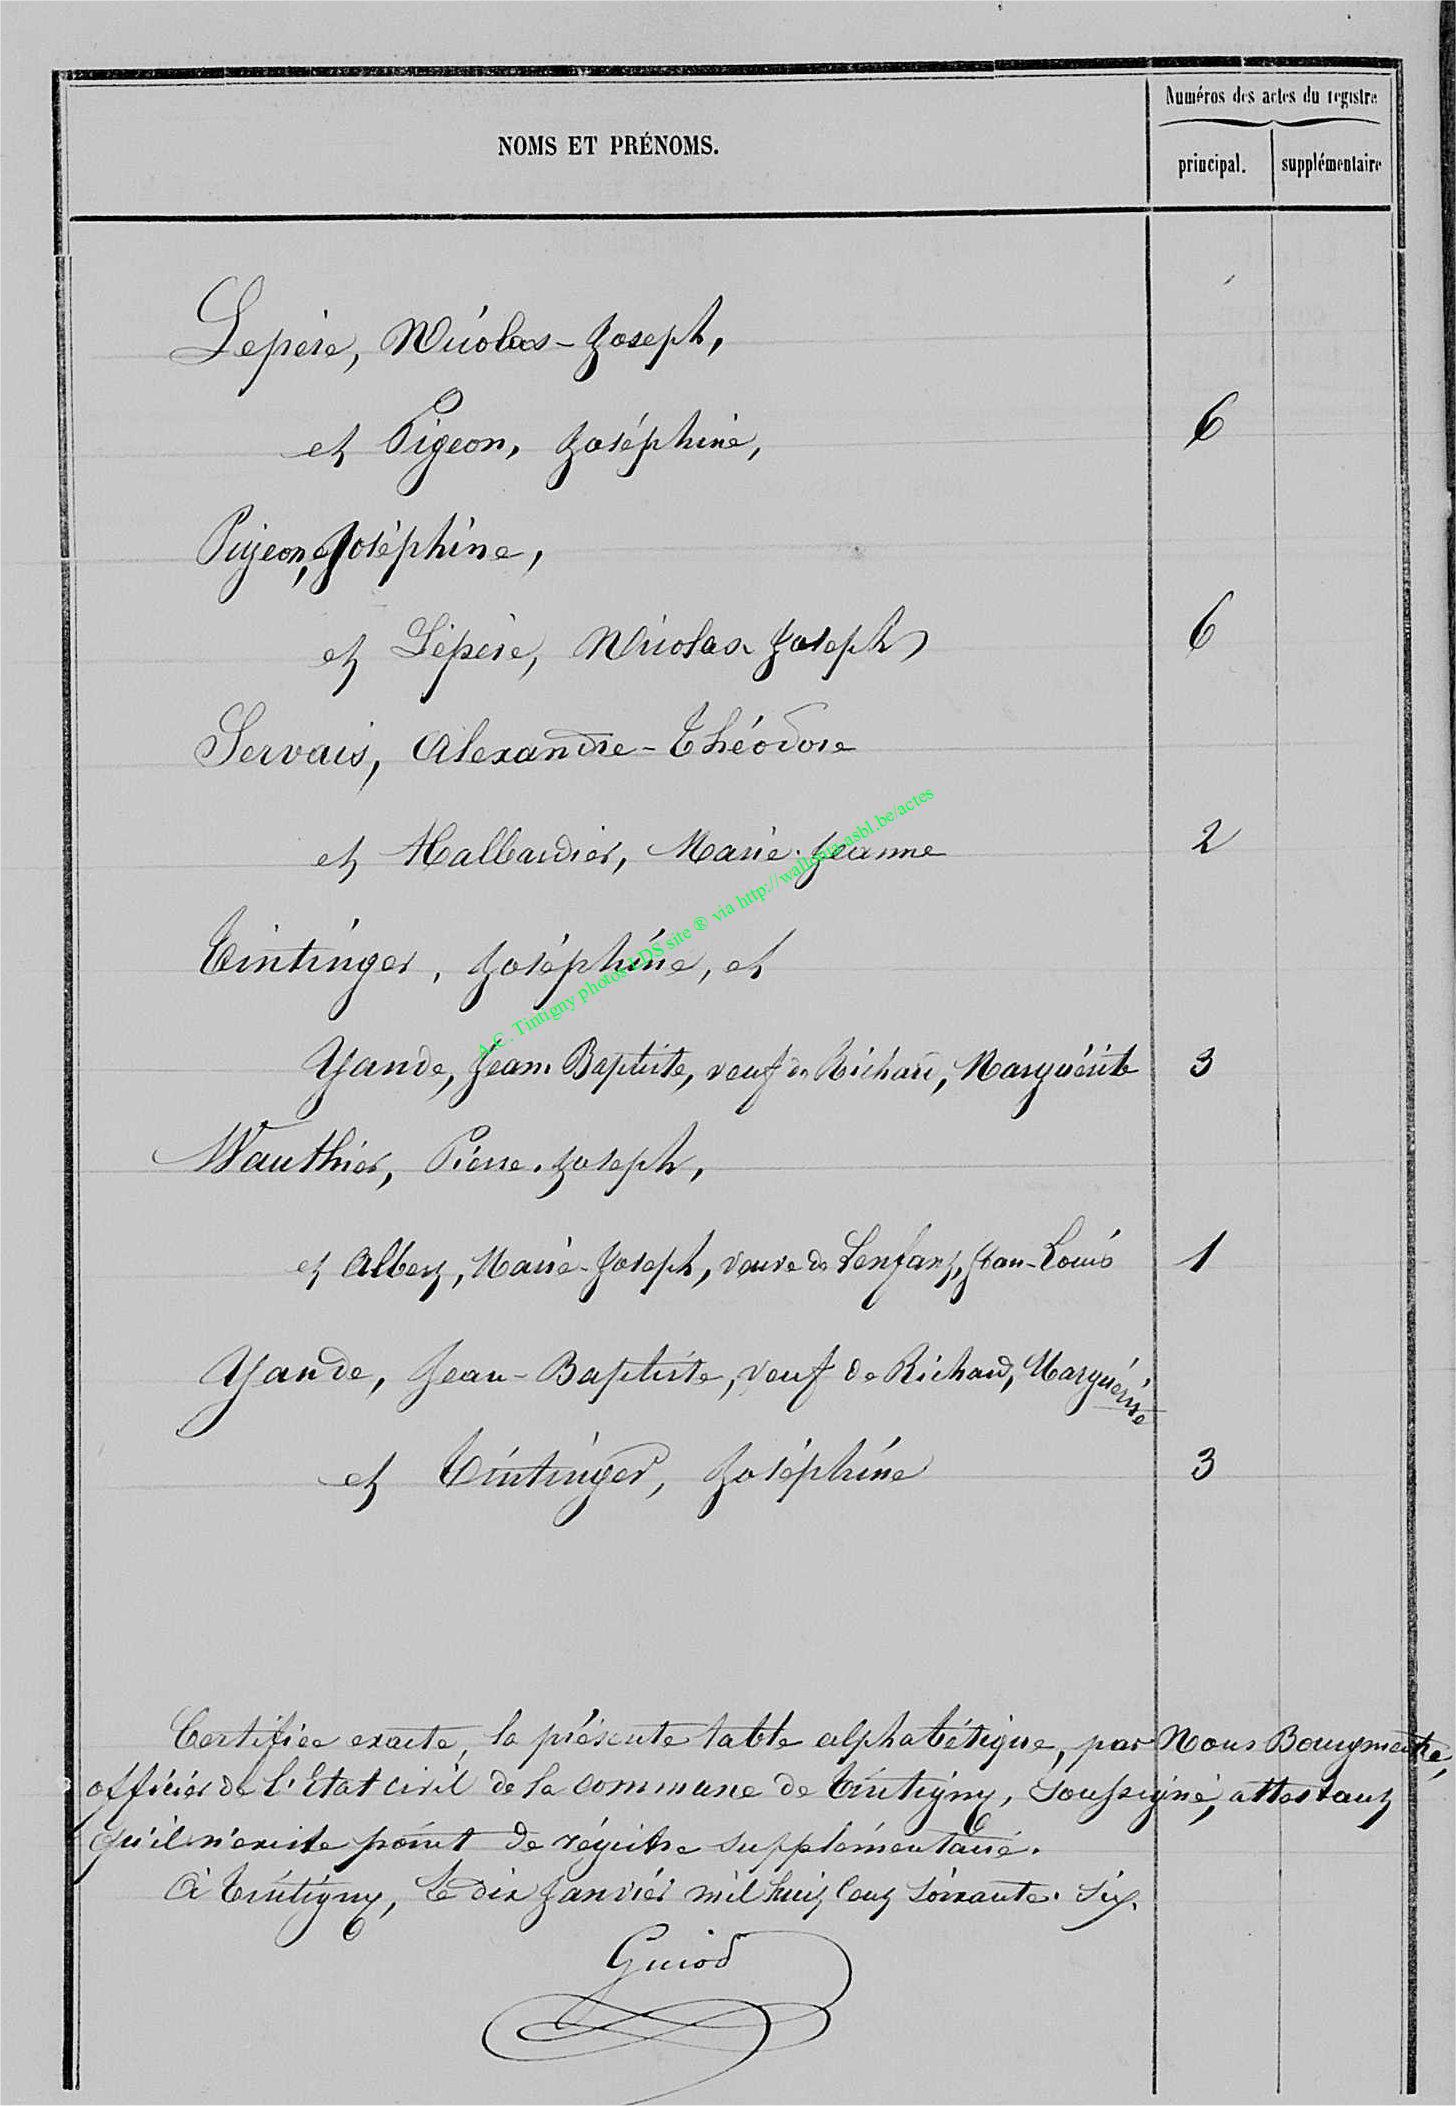 NOMS ET PRÉNOMS.
Numéros des actes du registre
principal.
supplémentaire
Lepère, Nicolas-Joseph,
et Pigeon, Joséphine, 6
Pigeon, Joséphine,
et Lépère, Nicolas-Joseph, 6
Servais, Alexandre-Théodore
et Halbardier, Marie-Jeanne 2
Tintinger, Joséphine, et
Yande, Jean-Baptiste, veuf de Richard, Marguérite 3
Wauthier, Pierre-Joseph,
et Albert, Marie-Joseph, veuve de Lenfant, Jean-Louis 1
Yande, Jean-Baptiste, veuf de Richard, Marguérite
et Tintinger, Joséphine 3
Certifiée exacte, la présente table alphabétique, par Nous Bourgmestre,
officier de l'Etat civil de la commune de Tintigny, soussigné, attestant
qu'il n'existe point de régistre supplémentaire.
A Tintigny, le dix Janvier mil huit cent soixante-six.
Guiod
A.C. Tintigny photos LDS site ® via http://wallonia-asbl.be/actes